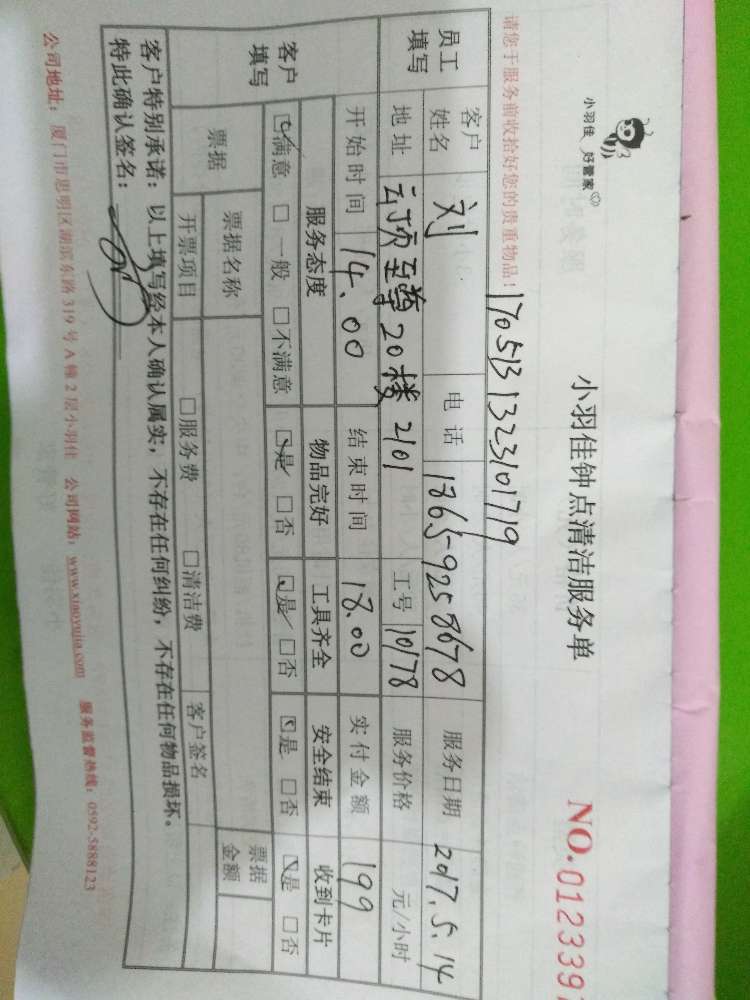 小羽佳 好管家
小羽佳钟点清洁服务单
NO.0123397
请您于服务前收拾好您的贵重物品!
1705131323101719
员工填写 客户姓名 刘 电话 1865-9258678 服务日期 2017.5.14
地址 云顶至尊20楼2101 工号 10178 服务价格 元/小时
客户填写 开始时间 14.00 结束时间 18.00 实付金额 199
服务态度 物品完好 工具齐全 安全结束 收到卡片
☑满意 □一般 □不满意 ☑是 □否 ☑是 □否 ☑是 □否 ☑是 □否
票据 票据名称 票据金额
开票项目 □服务费 □清洁费 客户签名
客户特别承诺:以上填写经本人确认属实,不存在任何纠纷,不存在任何物品损坏。
特此确认签名:
公司地址:厦门市思明区湖滨东路319号A幢2层小羽佳 公司网站:www.xiaoyujia.com 服务监督热线:0592-5888123